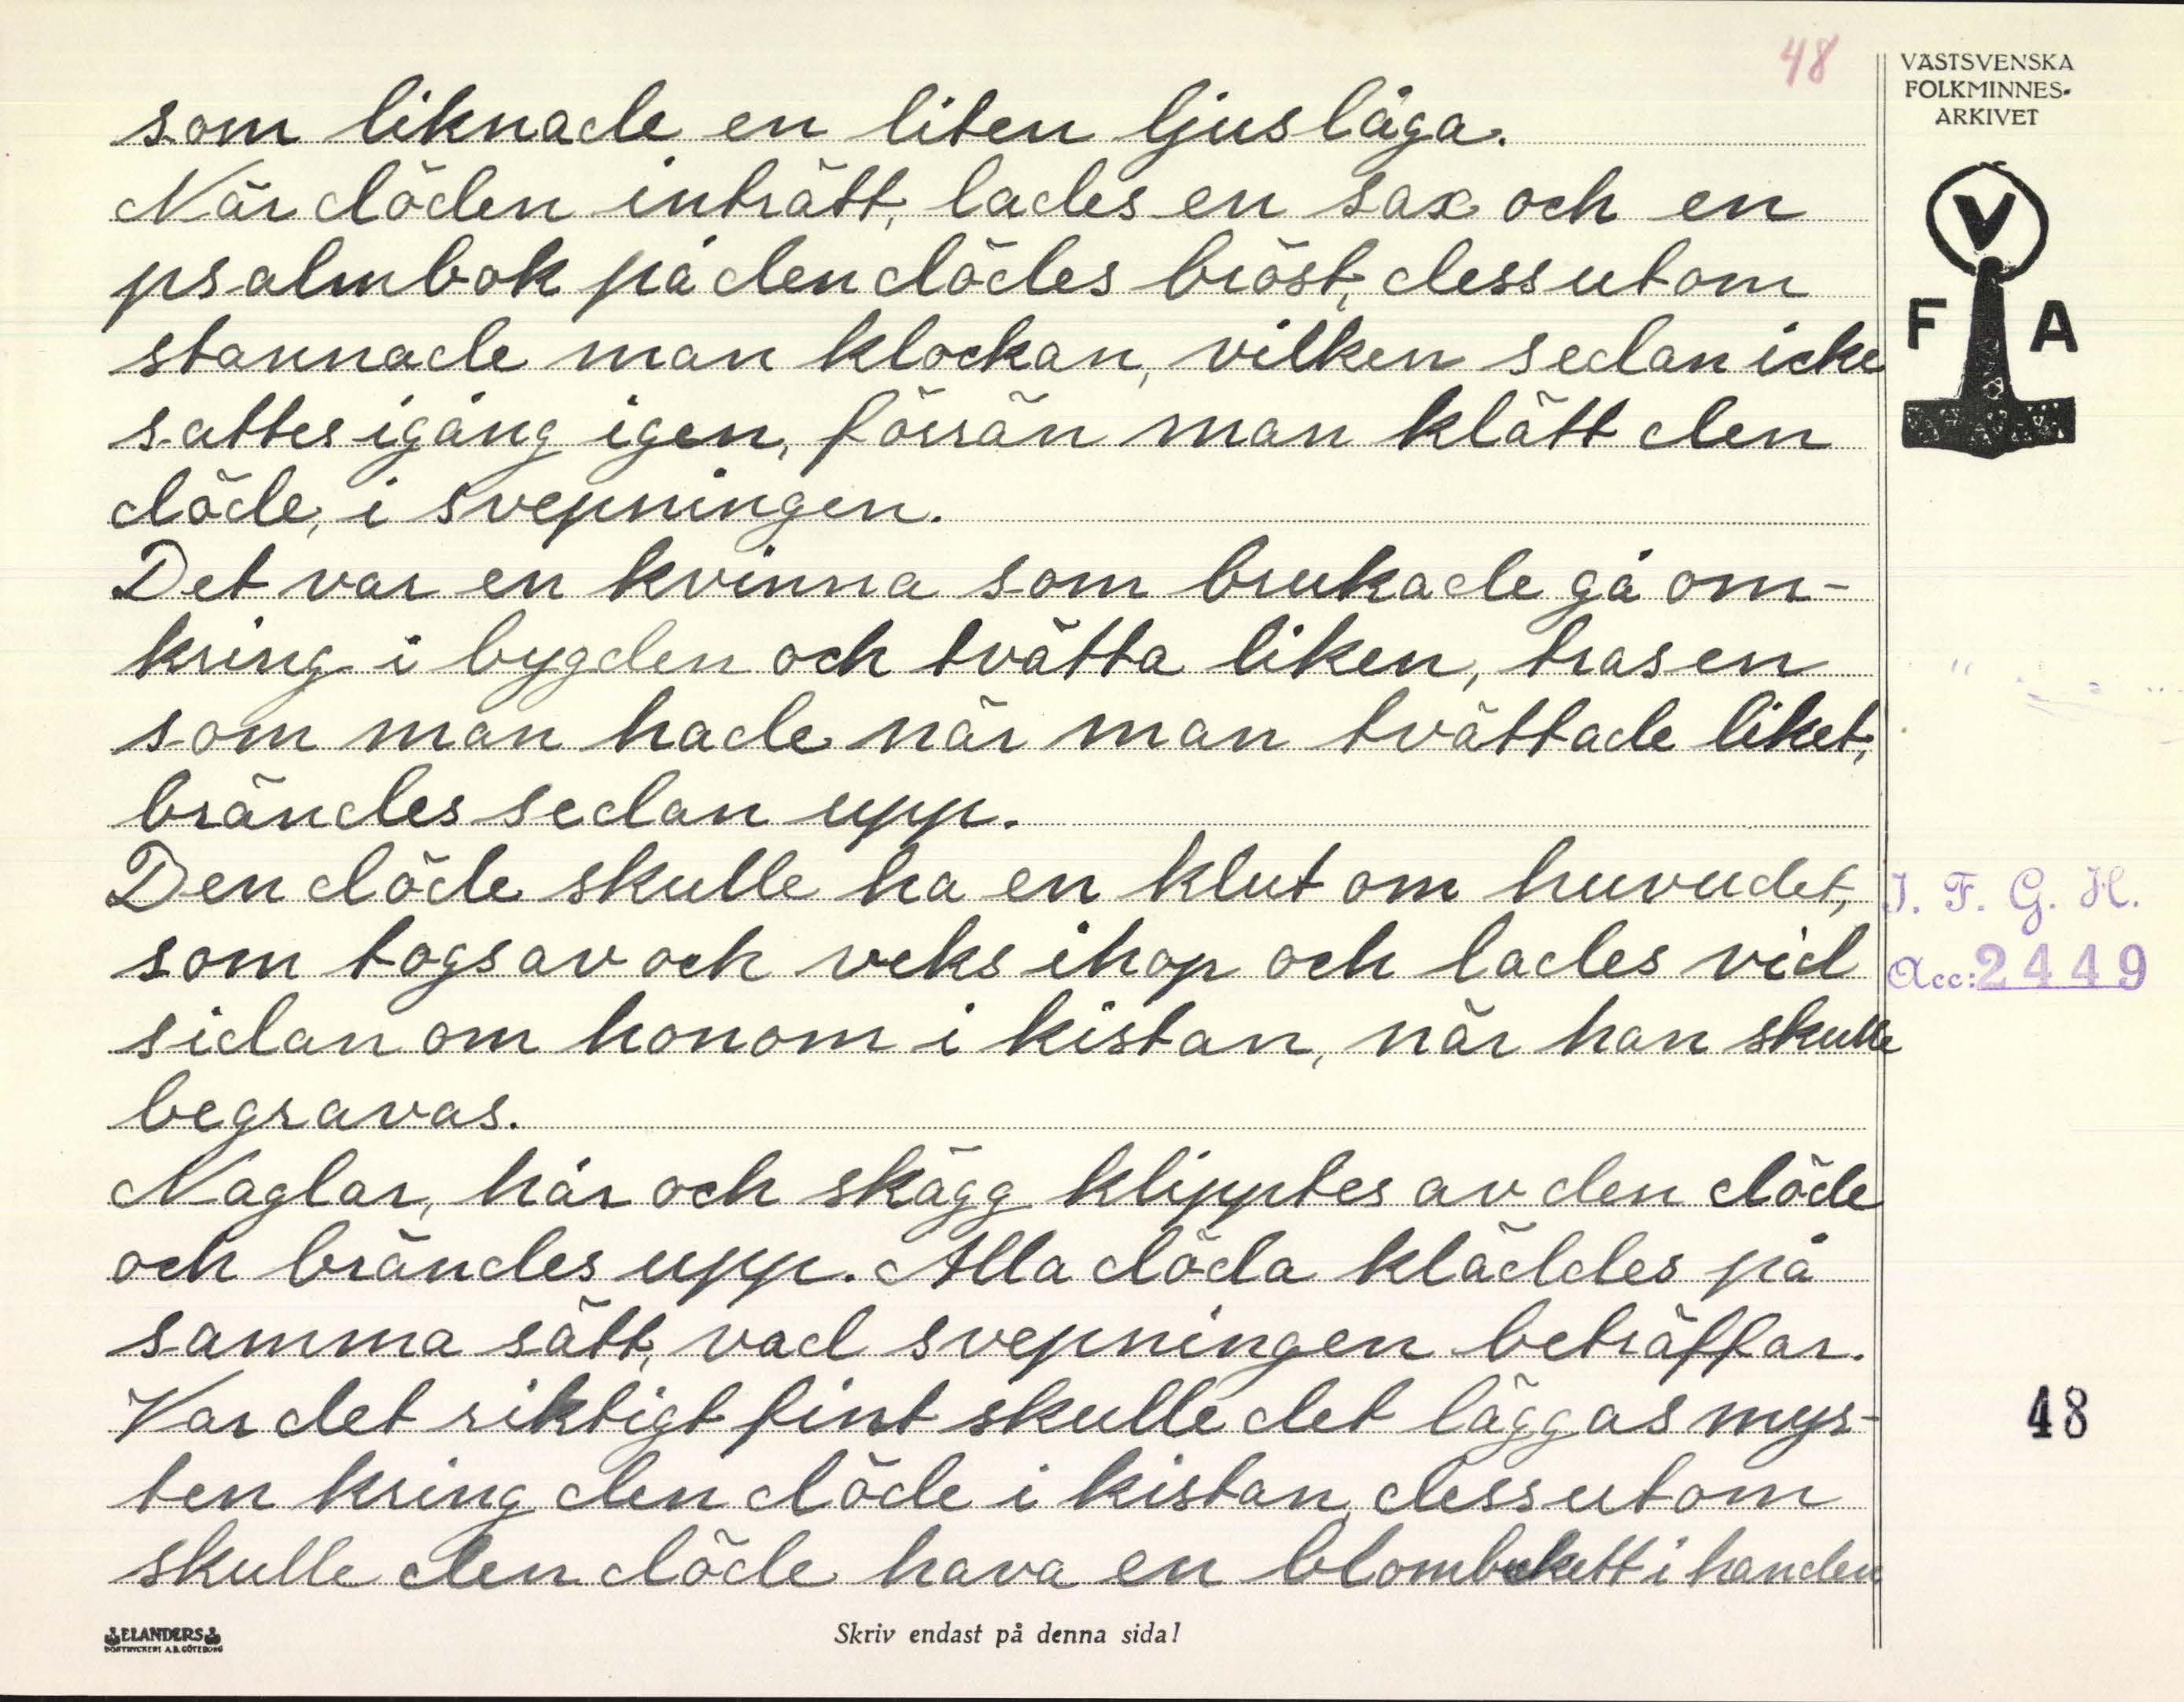 48
VÄSTSVENSKA
FOLKMINNES-
ARKIVET
V
F A
som liknade en liten ljuslåga.
När döden inträtt, lades en sax och en
psalmbok på den dödes bröst, dessutom
stannade man klockan, vilken sedan icke
sattes igång igen, förrän man klätt den
döde, i svepningen.
Det var en kvinna som brukade gå om-
kring i bygden och tvätta liken, trasen
som man hade när man tvättade liket,
brändes sedan upp.
Den döde skulle ha en klut om huvudet,
som togs av och veks ihop och lades vid
sidan om honom i kistan, när han skulle
begravas.
Naglar, hår och skägg klipptes av den döde
och brändes upp. Alla döda kläddes på
samma sätt, vad svepningen beträffar.
Var det riktigt fint skulle det läggas myr-
ten kring den döde i kistan, dessutom
skulle den döde hava en blombukett i handen
I. F. G. H.
Acc: 2449
48
ELANDERS
BOKTRYCKERI A.B. GÖTEBORG
Skriv endast på denna sida!